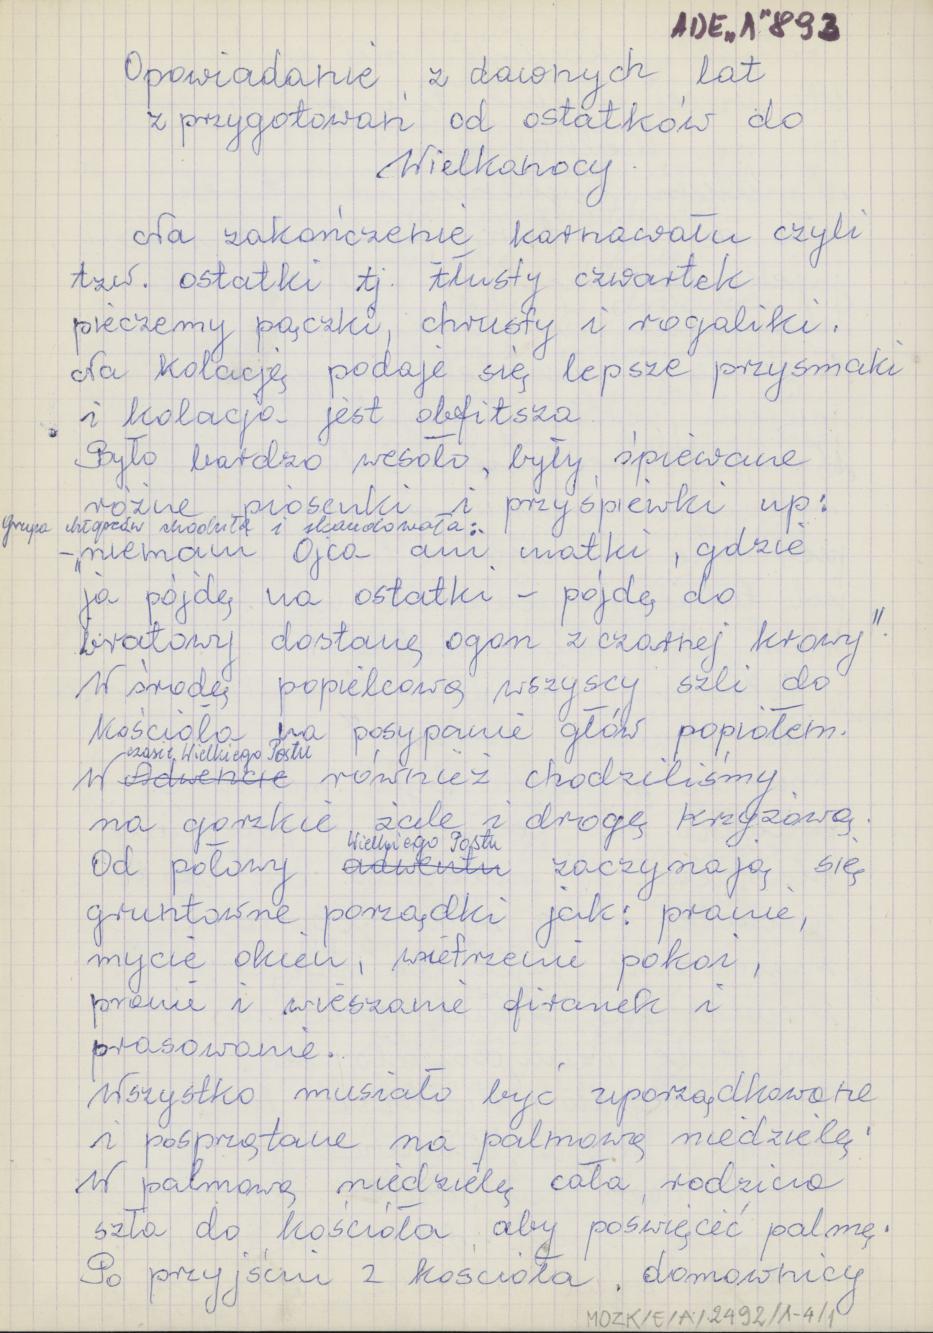 ADE„A"893
Opowiadanie z dawnych lat
z przygotowań od ostatków do
Wielkanocy.
Na zakończenie karnawału czyli
tzw. ostatki tj. tłusty czwartek
pieczemy pączki, chrusty i rogaliki.
Na kolację podaje się lepsze przysmaki
i kolacja jest obfitsza
Było bardzo wesoło, były śpiewane
różne piosenki i przyśpiewki np:
Grupa chłopców chodziła i skandowała:
– „niemam Ojca ani matki, gdzie
ja pójdę na ostatki – pójdę do
bratowy dostanę ogon z czarnej krowy".
W środę popielcową wszyscy szli do
Kościoła na posypanie głów popiołem.
czasie Wielkiego Postu
W Adwencie również chodziliśmy
na gorzkie żale i drogę krzyżową.
Wielkiego Postu
Od połowy adwentu zaczynają się
gruntowne porządki jak: pranie,
mycie okien, wietrzenie pokoi,
pranie i wieszanie firanek i
prasowanie.
Wszystko musiało być uporządkowane
i posprzątane na palmową niedzielę.
W palmową niedzielę cała rodzina
szła do kościoła aby poświęcić palmę.
Po przyjściu z kościoła, domownicy
MOZK/E/A/2492/1-4/1